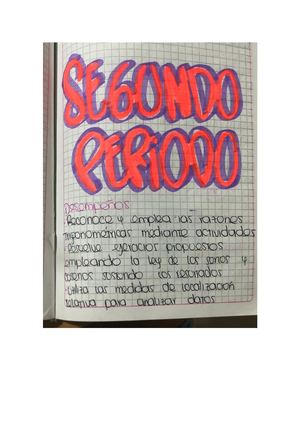 SEGUNDO
PERIODO
Desempeños
Reconoce y emplea las razones
trigonometricas mediante actividades
Resuelve ejercicios propuestos
empleando la ley de los senos y
cosenos sustendo los resultados
utiliza las medidas de localizacion
relativa para analizar datos